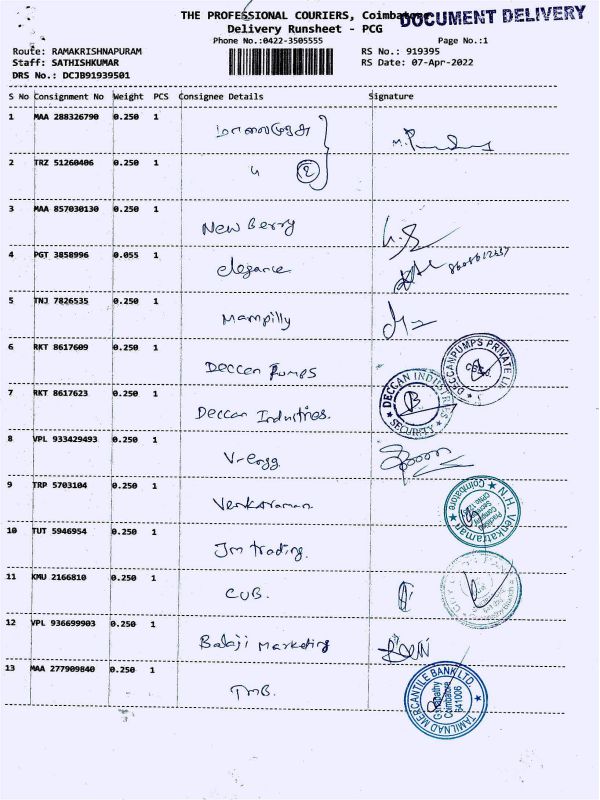 THE PROFESSIONAL COURIERS, Coimbatore
DOCUMENT DELIVERY
Delivery Runsheet - PCG
Phone No.:0422-3505555
Page No.:1
Route: RAMAKRISHNAPURAM
RS No.: 919395
Staff: SATHISHKUMAR
RS Date: 07-Apr-2022
DRS No.: DCJB91939501
S No Consignment No Weight PCS Consignee Details Signature
1 MAA 288326790 0.250 1
2 TRZ 51260406 0.250 1 4 2
3 MAA 857030130 0.250 1 New Berry
4 PGT 3858996 0.055 1 elegance
5 TNJ 7826535 0.250 1 Mampilly
6 RKT 8617609 0.250 1 Deccan Pumps
DECCANPUMPS PRIVATE
7 RKT 8617623 0.250 1 Deccan Industries.
DECCAN INDUSTRIES
SECURITY
8 VPL 933429493 0.250 1 V-engg.
9 TRP 5703104 0.250 1 Venkatraman
N.H. Venkatraman
Coimbatore
10 TUT 5946954 0.250 1 Jm trading.
11 KMU 2166810 0.250 1 CUB.
12 VPL 936699903 0.250 1 Balaji Marketing
13 MAA 277909840 0.250 1 TMB.
TAMILNAD MERCANTILE BANK LTD.
Ganapathy
Coimbatore
641006